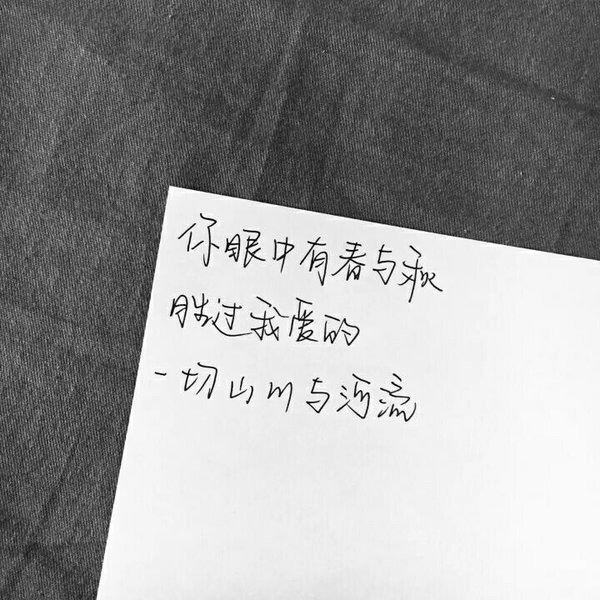 你眼中有春与秋
胜过我爱的
一切山川与河流